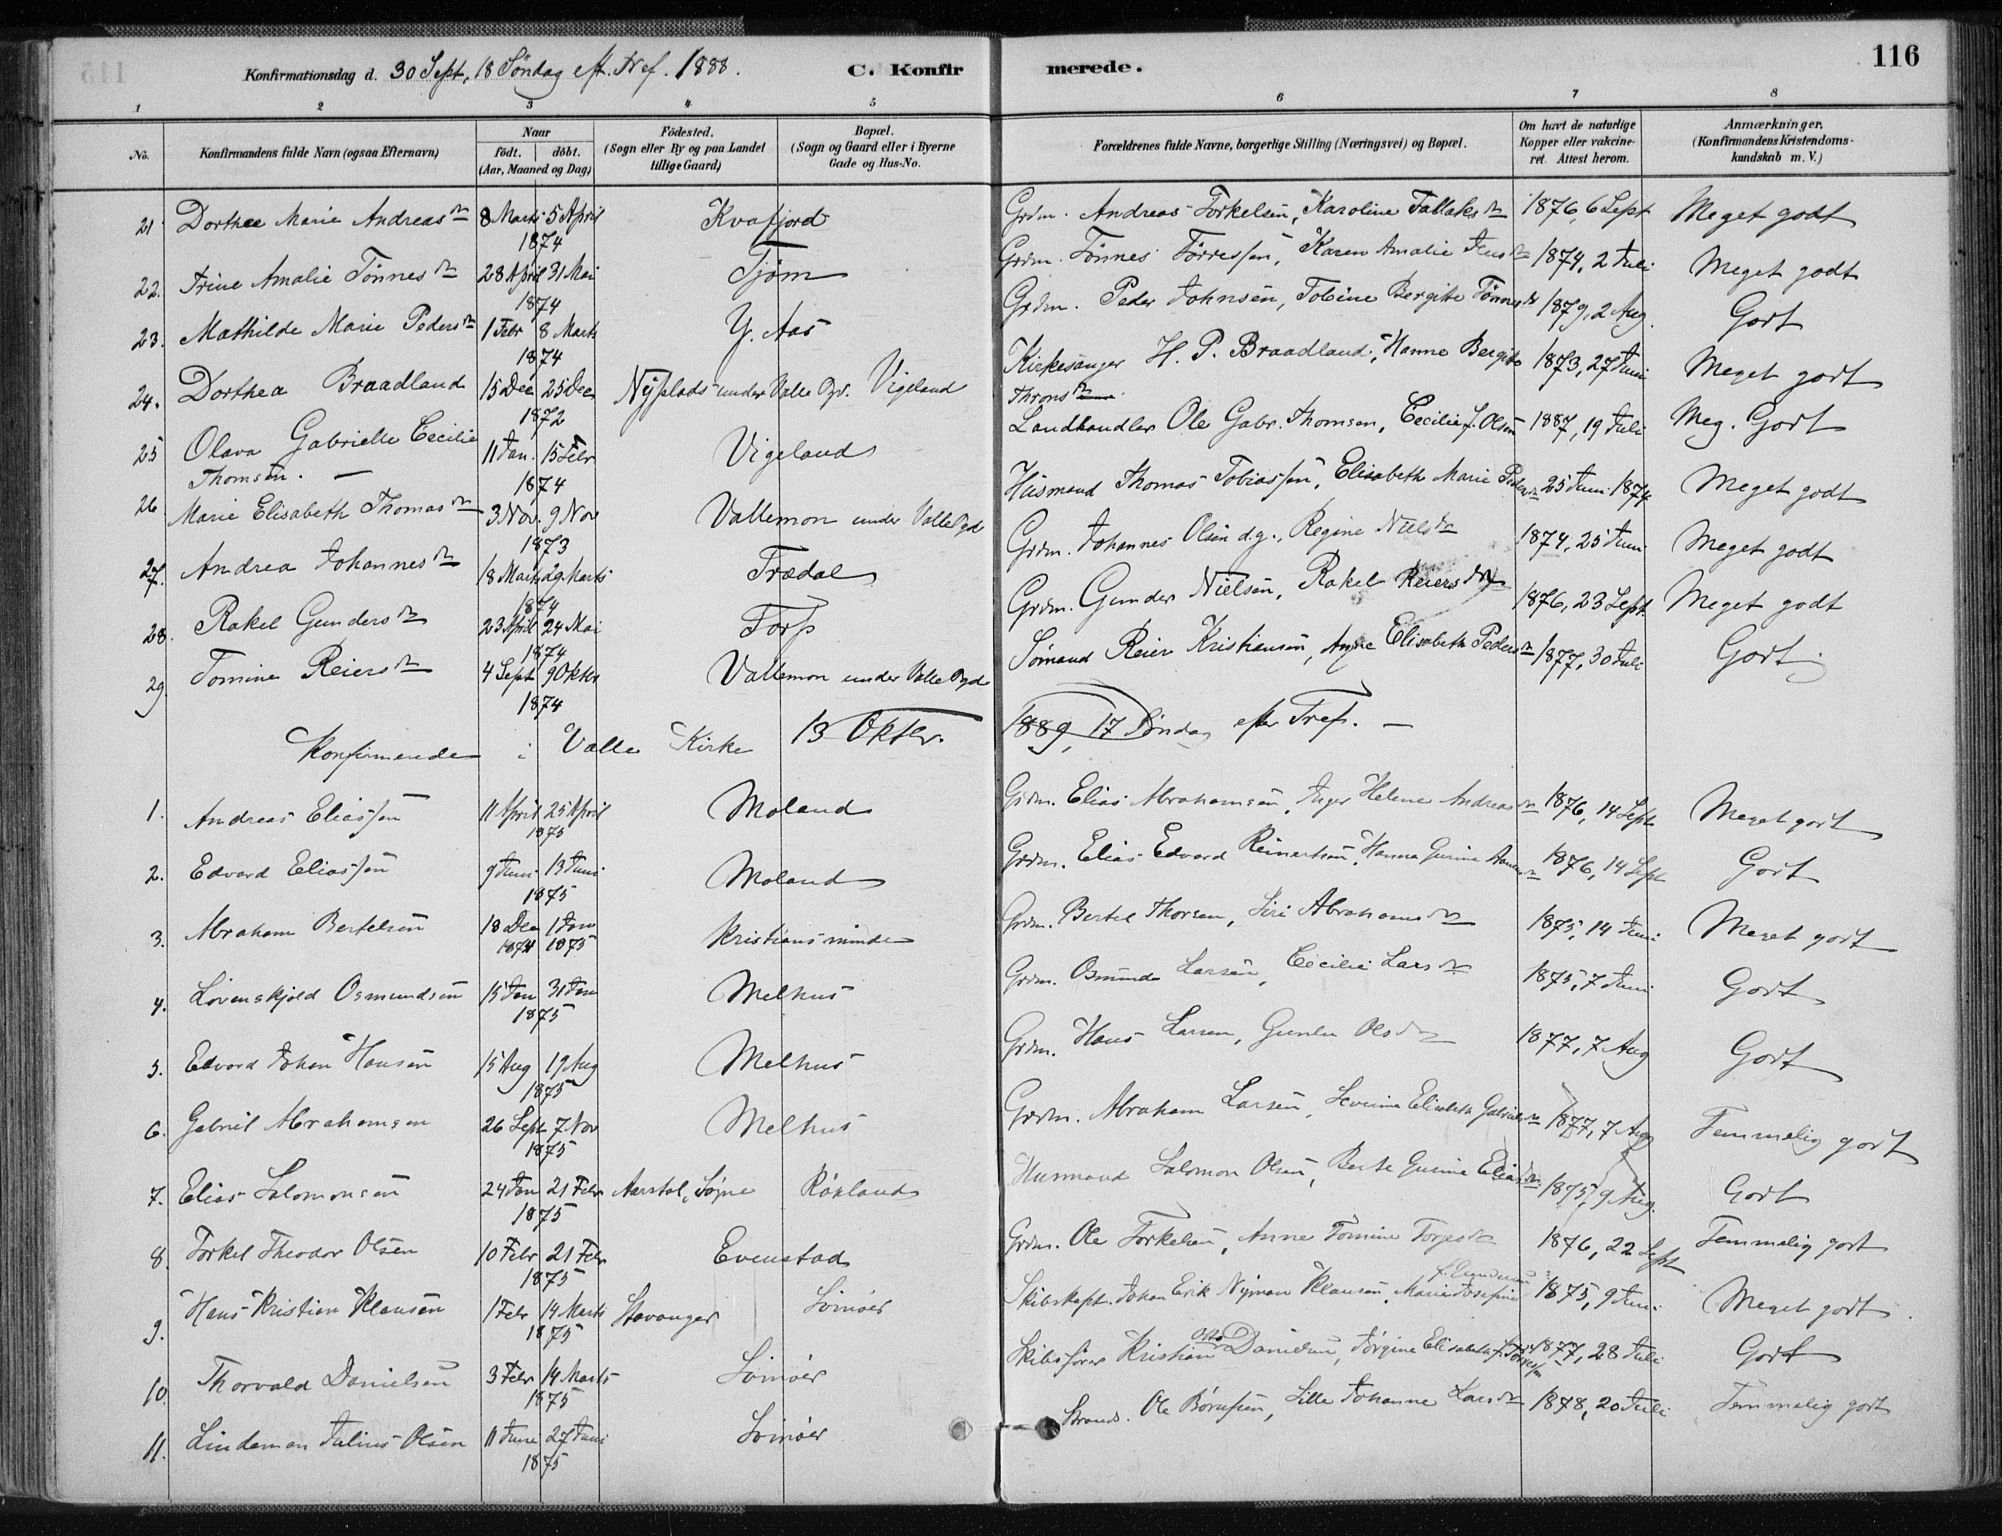 116
Konfirmationsdag d. 30 Sept, 18 Söndag eft. Tref. 1888. C. Konfirmerede.
1 2 3 4 5 6 7 8
No. Konfirmandens fulde Navn (ogsaa Efternavn) Naar födt. döbt. (Aar, Maaned og Dag) Födested. (Sogn eller By og paa Landet tillige Gaard) Bopæl. (Sogn og Gaard eller i Byerne Gade og Hus-No. Forældrenes fulde Navne, borgerlige Stilling (Næringsvei) og Bopæl. Om havt de naturlige Kopper eller vakcineret. Attest herom. Anmærkninger. (Konfirmandens Kristendomskundskab m. V.)
21 Dorthea Marie Andreasdtr 8 Marts 5 April 1874 Kvafjord Grdm. Andreas Torkelsen, Karoline Tallaksdtr 1876, 6 Sept Meget godt
22. Trine Amalie Tönnesdtr 28 April 31 Mai 1874 Tjöm Grdm. Tönnes Törressen, Karen Amalie Jensdtr 1874, 2 Juli Meget godt
23. Mathilde Marie Pedersdtr 1 Febr 8 Marts 1874 Y. Aas Grdm. Peder Johnsen, Tobine Bergite Tönnesdtr 1879, 2 Aug. Godt
24. Dorthea Braadland 15 Dec 25 Dec 1872 Nyplads under Valle Pgd. Vigeland Kirkesanger H. P. Braadland, Hanne Bergite Thronsdtr 1873, 27 Juni Meget godt
25 Olava Gabrielle Cecilie Thomsen. 11 Jan. 15 Febr 1874 Vigeland Landhandler Ole Gabr. Thomsen, Cecilie f. Olsen 1887, 19 Juli Meg. Godt
26 Marie Elisabeth Thomasdtr 3 Nov. 9 Nov 1873 Vallemon under Valle Pgd Husmand Thomas Tobiassen, Elisabeth Marie Pedersdtr 25 Juni 1874 Meget godt
27. Andrea Johannesdtr 18 Marts 29 Marts 1874 Trædal Grdm. Johannes Olsen d.y., Regine Nielsdtr 1874, 25 Juni Meget godt
28. Rakel Gundersdtr 23 April 24 Mai 1874 Torp Grdm. Gunder Nielsen, Rakel Reiersdtr 1876, 23 Sept. Meget godt
29 Tomine Reiersdtr 4 Sept 9 Oktbr 1874 Vallemon under Valle Pgd Sömand Reier Kristiansen, Anne Elisabeth Pedersdtr 1877, 30 Juli Godt
Konfirmerede i Valle Kirke 13 Oktbr. 1889, 17 Söndag efter Tref.
1. Andreas Eliassen 11 April 25 April 1875 Moland Grdm. Elias Abrahamsen, Inger Helene Andreasdtr 1876, 14 Sept Meget godt
2. Edvard Eliassen 9 Juni 13 Juni 1875 Moland Grdm. Elias Edvard Reinertsen, Hanna Gurine 1876, 14 Sept Godt
3. Abraham Bertelsen 18 Dec 1874 1 Jan 1875 Kristiansminde Grdm. Bertel Thorsen, Siri Abrahamsdtr 1875, 14 Juni Meget godt
4. Lövenskjold Osmundsen 15 Jan 31 Jan 1875 Melhus Grdm. Osmund Larsen, Cecilie Larsdtr 1875, 7 Juni Godt
5. Edvard Johan Hansen 15 Aug 19 Aug 1875 Melhus Grdm. Hans Larsen, Gunlu Olsdtr 1877, 7 Aug Godt
6. Gabriel Abrahamsen 26 Sept 7 Nov 1875 Melhus Grdm. Abraham Larsen, Severine Elisabeth Gabrielsdtr 1877, 7 Aug Temmelig godt
7. Elias Salomonsen 24 Jan 21 Febr 1875 Aarstal, Søgne Röxland Husmand Salomon Olsen, Berte Gurine Eliasdtr 1875, 9 Aug. Godt
8. Torkel Theodor Olsen 10 Febr 21 Febr 1875 Evenstad Grdm. Ole Torkelsen, Anne Tomine Torjesdtr 1876, 22 Sept Temmelig godt
9. Hans Kristian Klausen 1 Febr 14 Marts 1875 Stavanger Svinöer Skibskapt. Johan Erik Nyman Klausen, Marie Josefine 1875, 9 Juni Meget godt
10. Thorvald Danielsen 3 Febr 14 Marts 1875 Svinöer Skibsförer Kristian Otto Danielsen, Jörgine Elisabeth f. 1877, 28 Juli Godt
11. Lindeman Julius Olsen 11 Juni 27 Juni 1875 Svinöer Strands. Ole Börufsen, Lille Johanne Larsdtr 1878, 20 Juli Temmelig godt